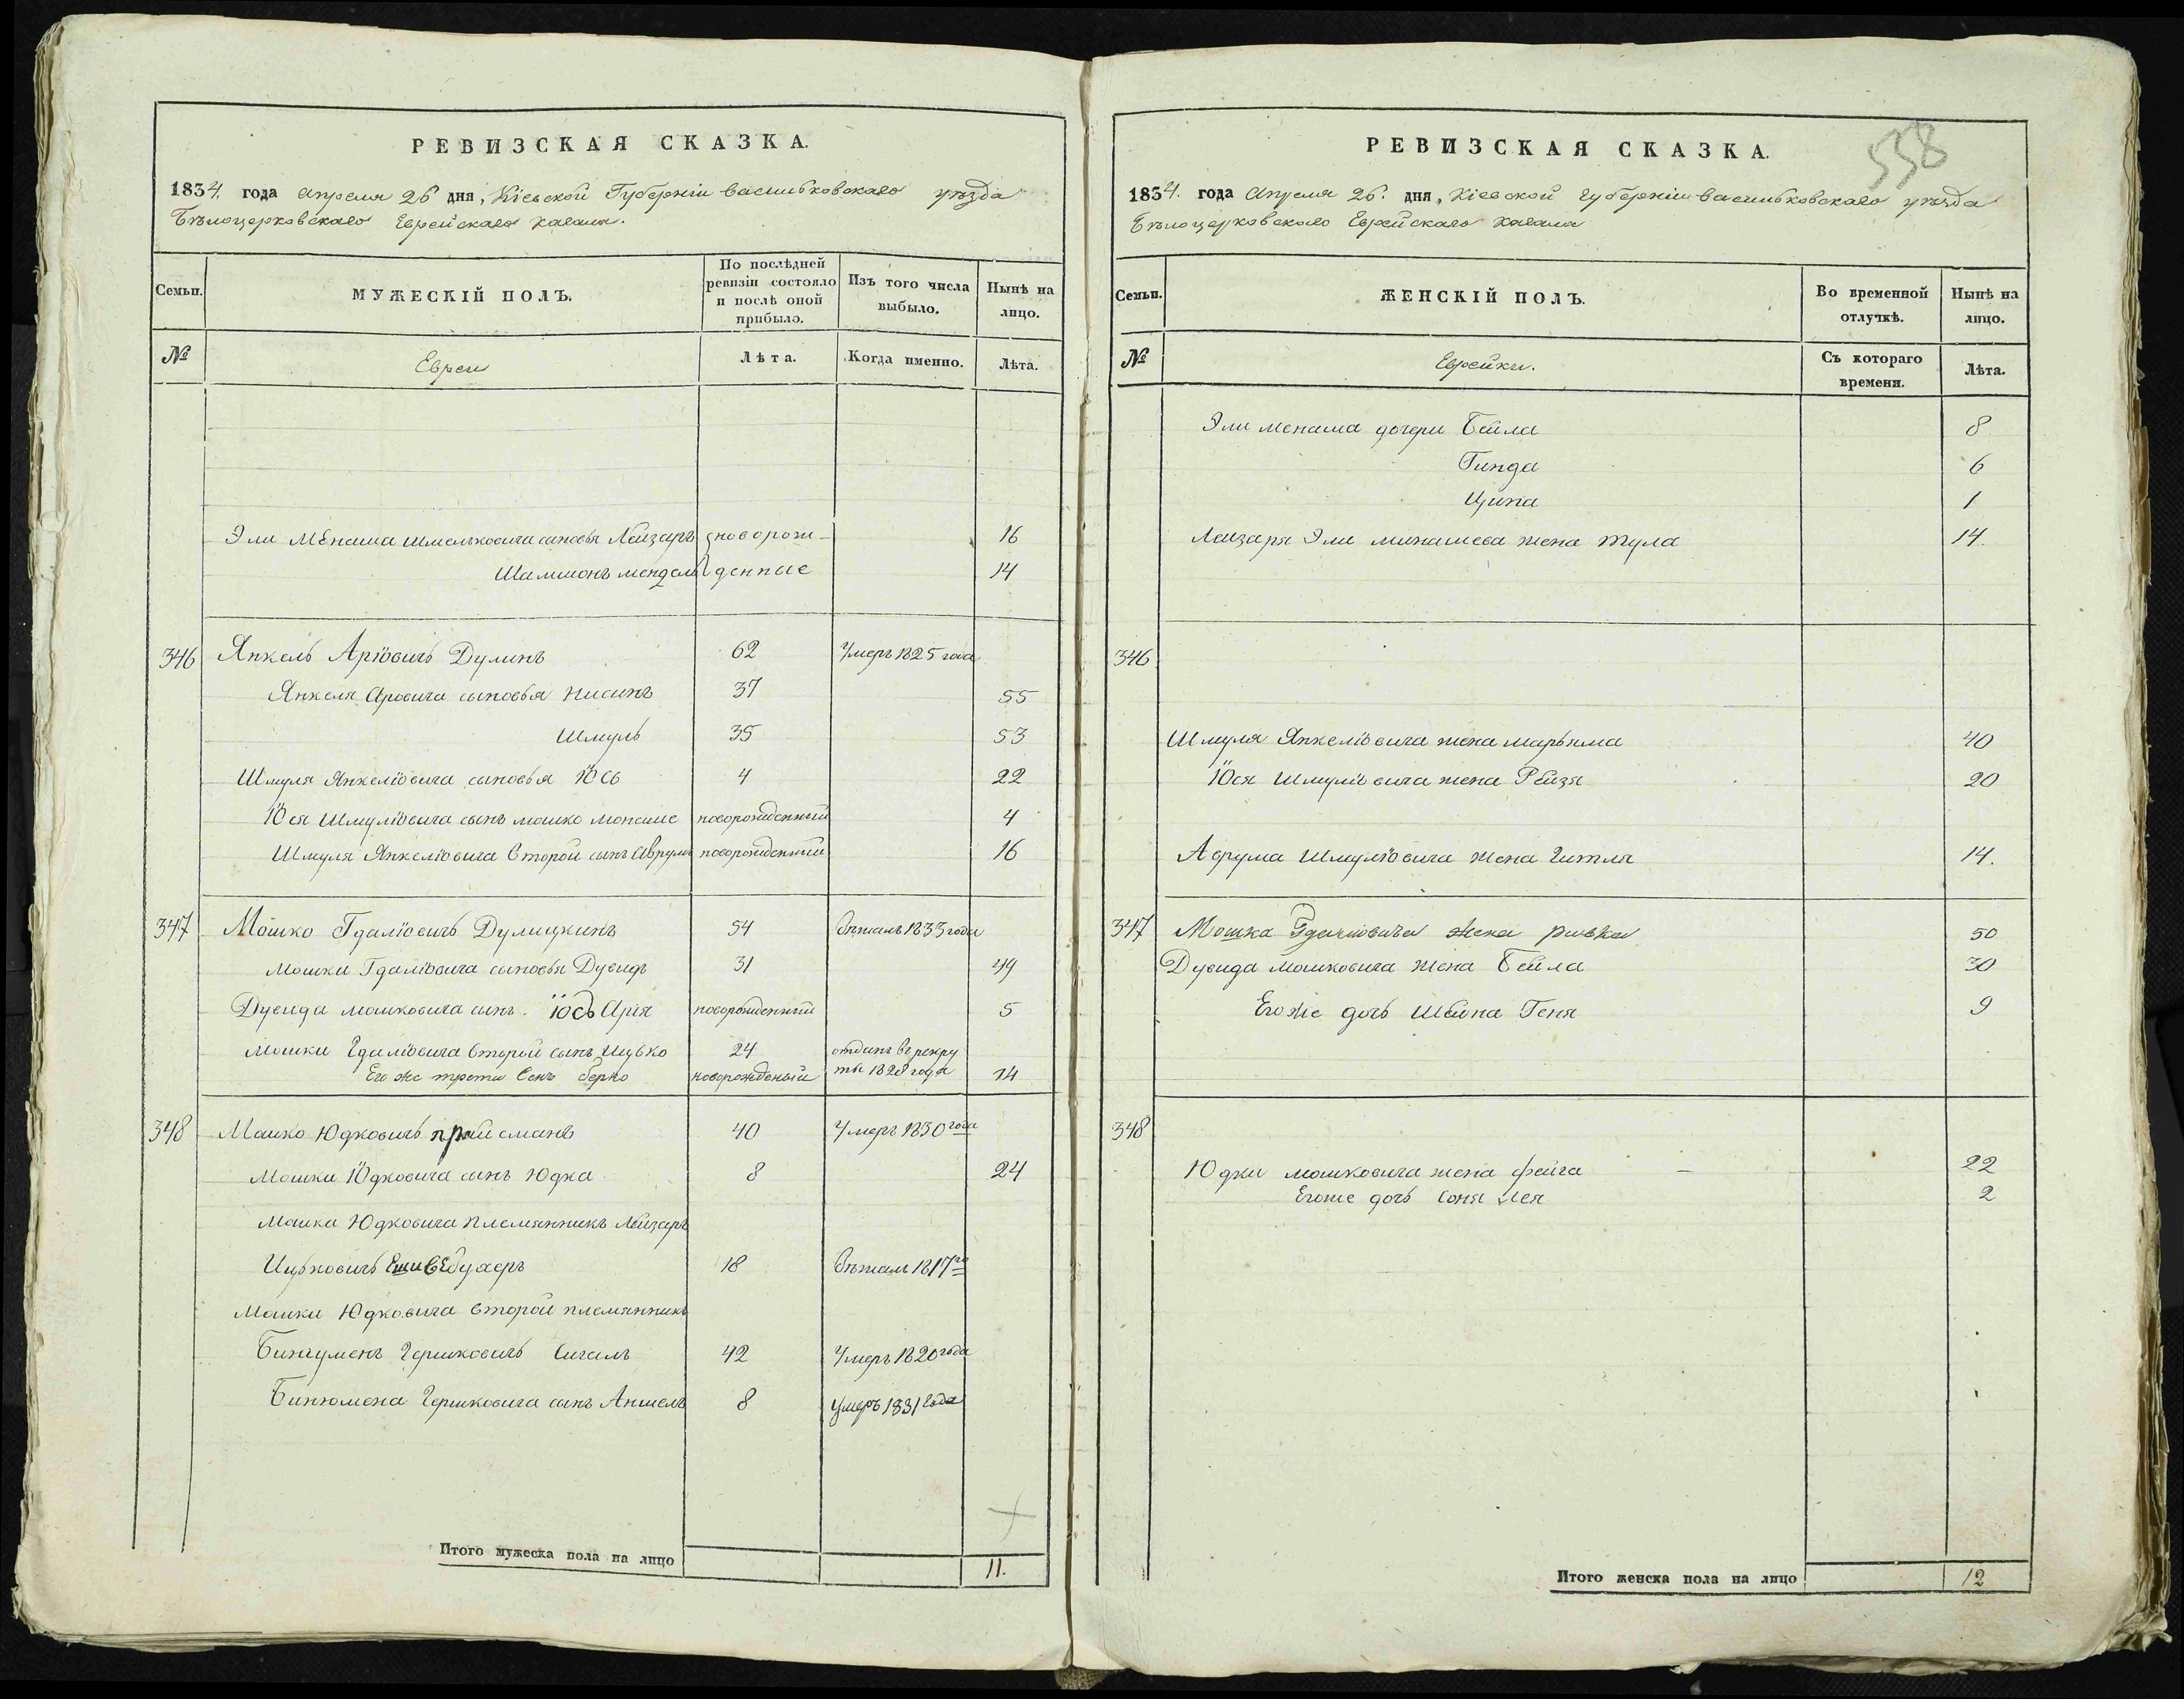 РЕВИЗСКАЯ СКАЗКА.
1834. года апреля 26 дня, Кіевской Губерніи васильковскаго уѣзда
Бѣлоцерковскаго Еврейскаго кагала.
Семьи.
МУЖЕСКІЙ ПОЛЪ.
По послѣдней ревизіи состояло и послѣ оной прибыло.
Изъ того числа выбыло.
Нынѣ на лицо.
№
Евреи
Лѣта.
Когда именно.
Лѣта.
Эли Менаша Шмельковича сыновья Лейзаръ новорож- 16
Шамшонъ мендель денные 14
346 Янкель Аріовичъ Дулинъ 62 Умеръ 1825 года
Янкеля Аровича сыновья нисинъ 37 55
Шмуль 35 53
Шмуля Янкеліовича сыновья Юсь 4 22
Юся Шмуліовича сынъ мошко монашe новорожденный 4
Шмуля Янкеліовича второй сынъ Аврумъ новорожденный 16
347 Мошко Гдаліовичъ Дулицкинъ 54 бѣжалъ 1833 года
Мошки Гдаліовича сыновья Дувидъ 31 49
Дувида мошковича сынъ Юсь Арія новорожденный 5
Мошки Гдаліовича второй сынъ Ицько 24 отданъ въ рекру
Его же трети сенъ берко новорожденый ты 1828 года 14
348 Мошко Юдковичъ прайсманъ 40 Умеръ 1830 года
Мошки Юдковича сынъ Юдка 8 24
Мошки Юдковича племянникъ Лейзаръ
Ицьковичъ Ешивебухеръ 18 бѣжалъ 1817 го
Мошки Юдковича второй племянникъ
Бинюменъ Гершковичъ Сигалъ 42 Умеръ 1820 года
Бинюмена Гершковича сынъ Аншель 8 Умеръ 1831 года
Итого мужеска пола на лицо 11.
558
РЕВИЗСКАЯ СКАЗКА.
1834. года Апреля 26. дня, Кіевской губерніи васильковскаго уѣзда
Бѣлоцерковскаго Еврейскаго кагала
Семьи.
ЖЕНСКІЙ ПОЛЪ.
Во временной отлучкѣ.
Нынѣ на лицо.
№
Еврейки.
Съ котораго времени.
Лѣта.
Эли менаша дочери Бейла 8
Гинда 6
Ципа 1
Лейзаря Эли минашева жена Тула 14.
346
Шмуля Янкеліовича жена марьяма 40
Юся Шмуліовича жена Рейзя 20
Аврума Шмуліовича жена Гитля 14.
347 Мошка Гдаліовича жена ривка 50
Дувида мошковича жена Бейла 30
Егоже дочь Шейна Геня 9
348
Юдки мошковича жена фейга 22
Егоже дочь Соня Лея 2
Итого женска пола на лицо 12